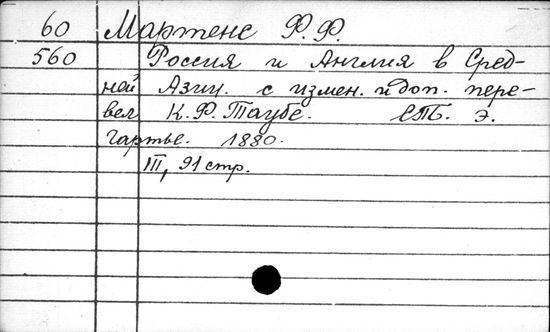 60 Мартенс Ф.Ф.
560 Россия и Англия в Сред-
ней Азии. с измен. и доп. пере-
вел К.Ф. Таубе. СПб. Э.
Гартье. 1880.
III, 91 стр.